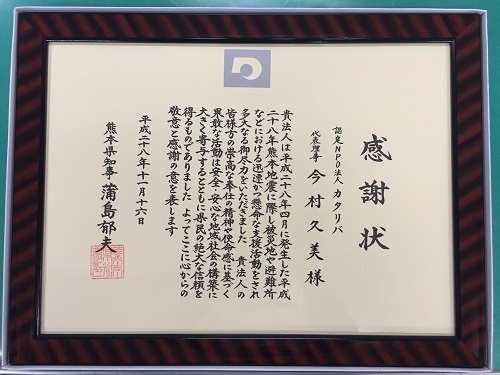 感謝状
認定NPO法人カタリバ
代表理事 今村久美様
貴法人は平成二十八年四月に発生した平成
二十八年熊本地震に際し被災地や避難所
などにおける迅速かつ懸命な支援活動をされ
多大なる御尽力をいただきました 貴法人の
皆様方の崇高な奉仕の精神や使命感に基づく
果敢な活動は安全・安心な地域社会の構築に
大きく寄与するとともに県民の絶大な信頼を
得るものでありました よってここに心からの
敬意と感謝の意を表します
平成二十八年十一月十六日
熊本県知事 蒲島郁夫